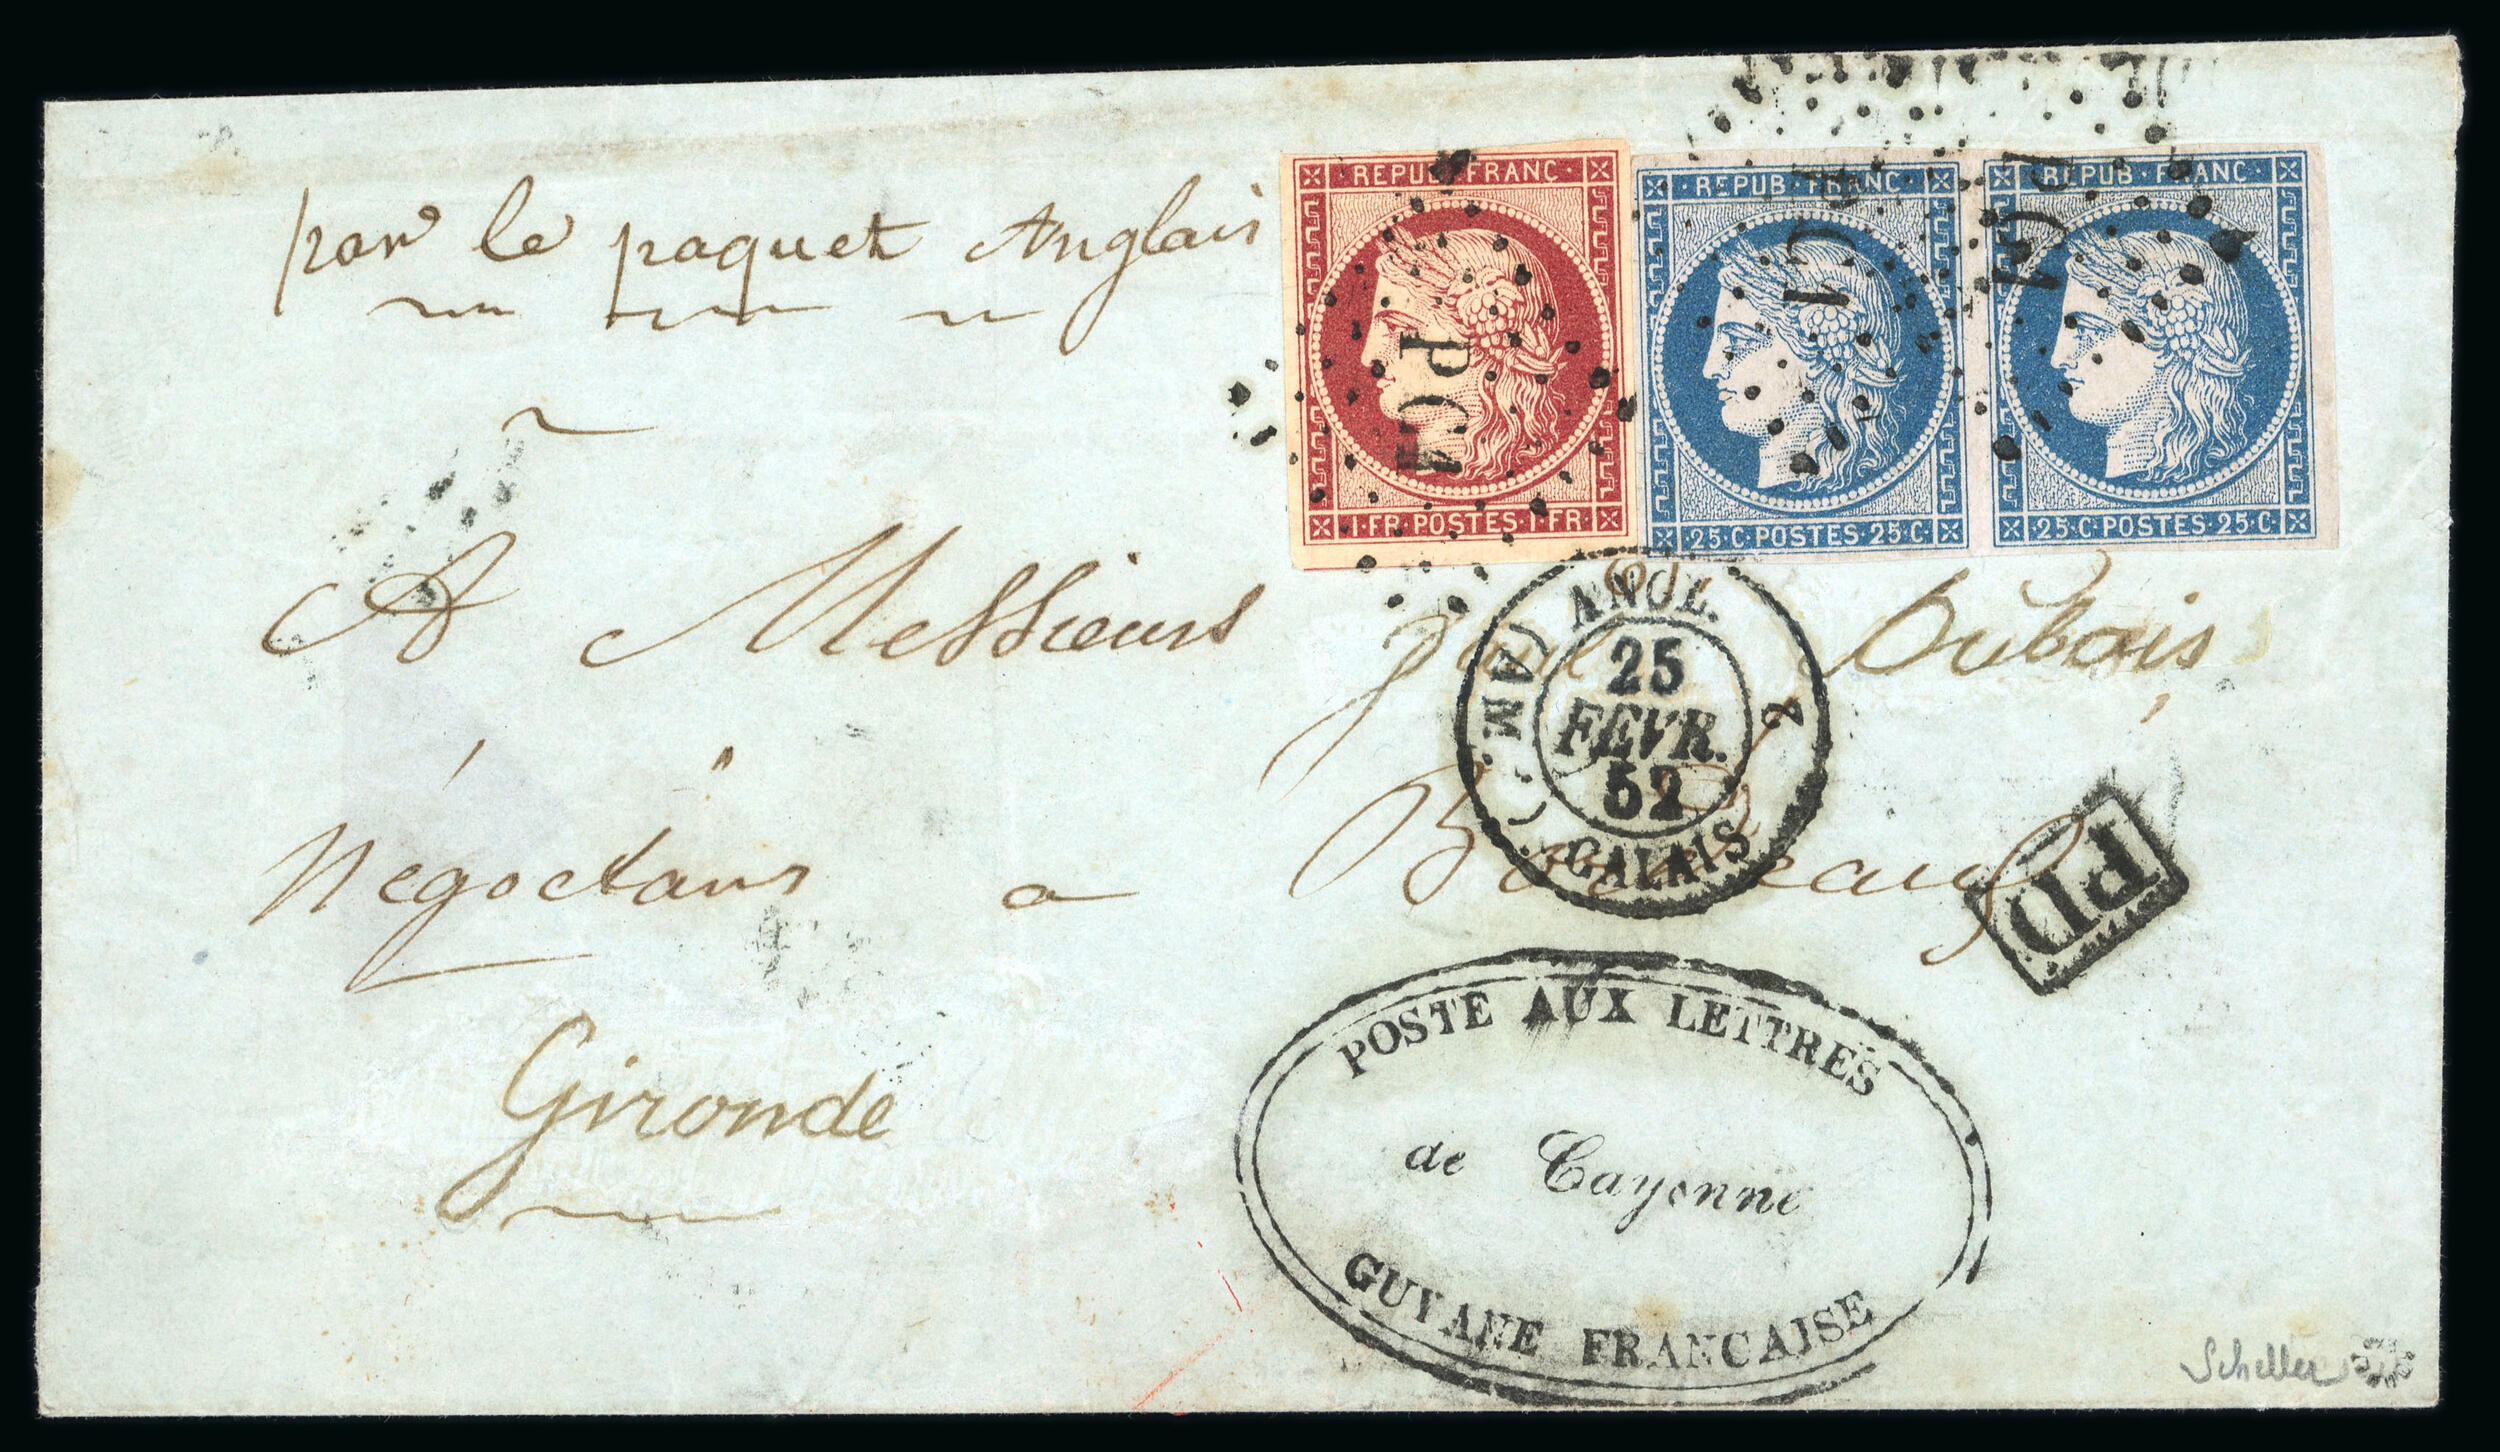 par le paquet Anglais
REPUB·FRANC
1·FR·POSTES·1·FR·
REPUB·FRANC·
25·C·POSTES·25·C·
REPUB·FRANC·
25·C·POSTES·25·C·
PC1
PC1
PC1
A Messieurs Dubois
ANGL.
2
25
FEVR.
52
(AM.)
CALAIS
Négoctans a Bordeaux
PD
Gironde
POSTE AUX LETTRES
de Cayenne
GUYANE FRANCAISE
Scheller